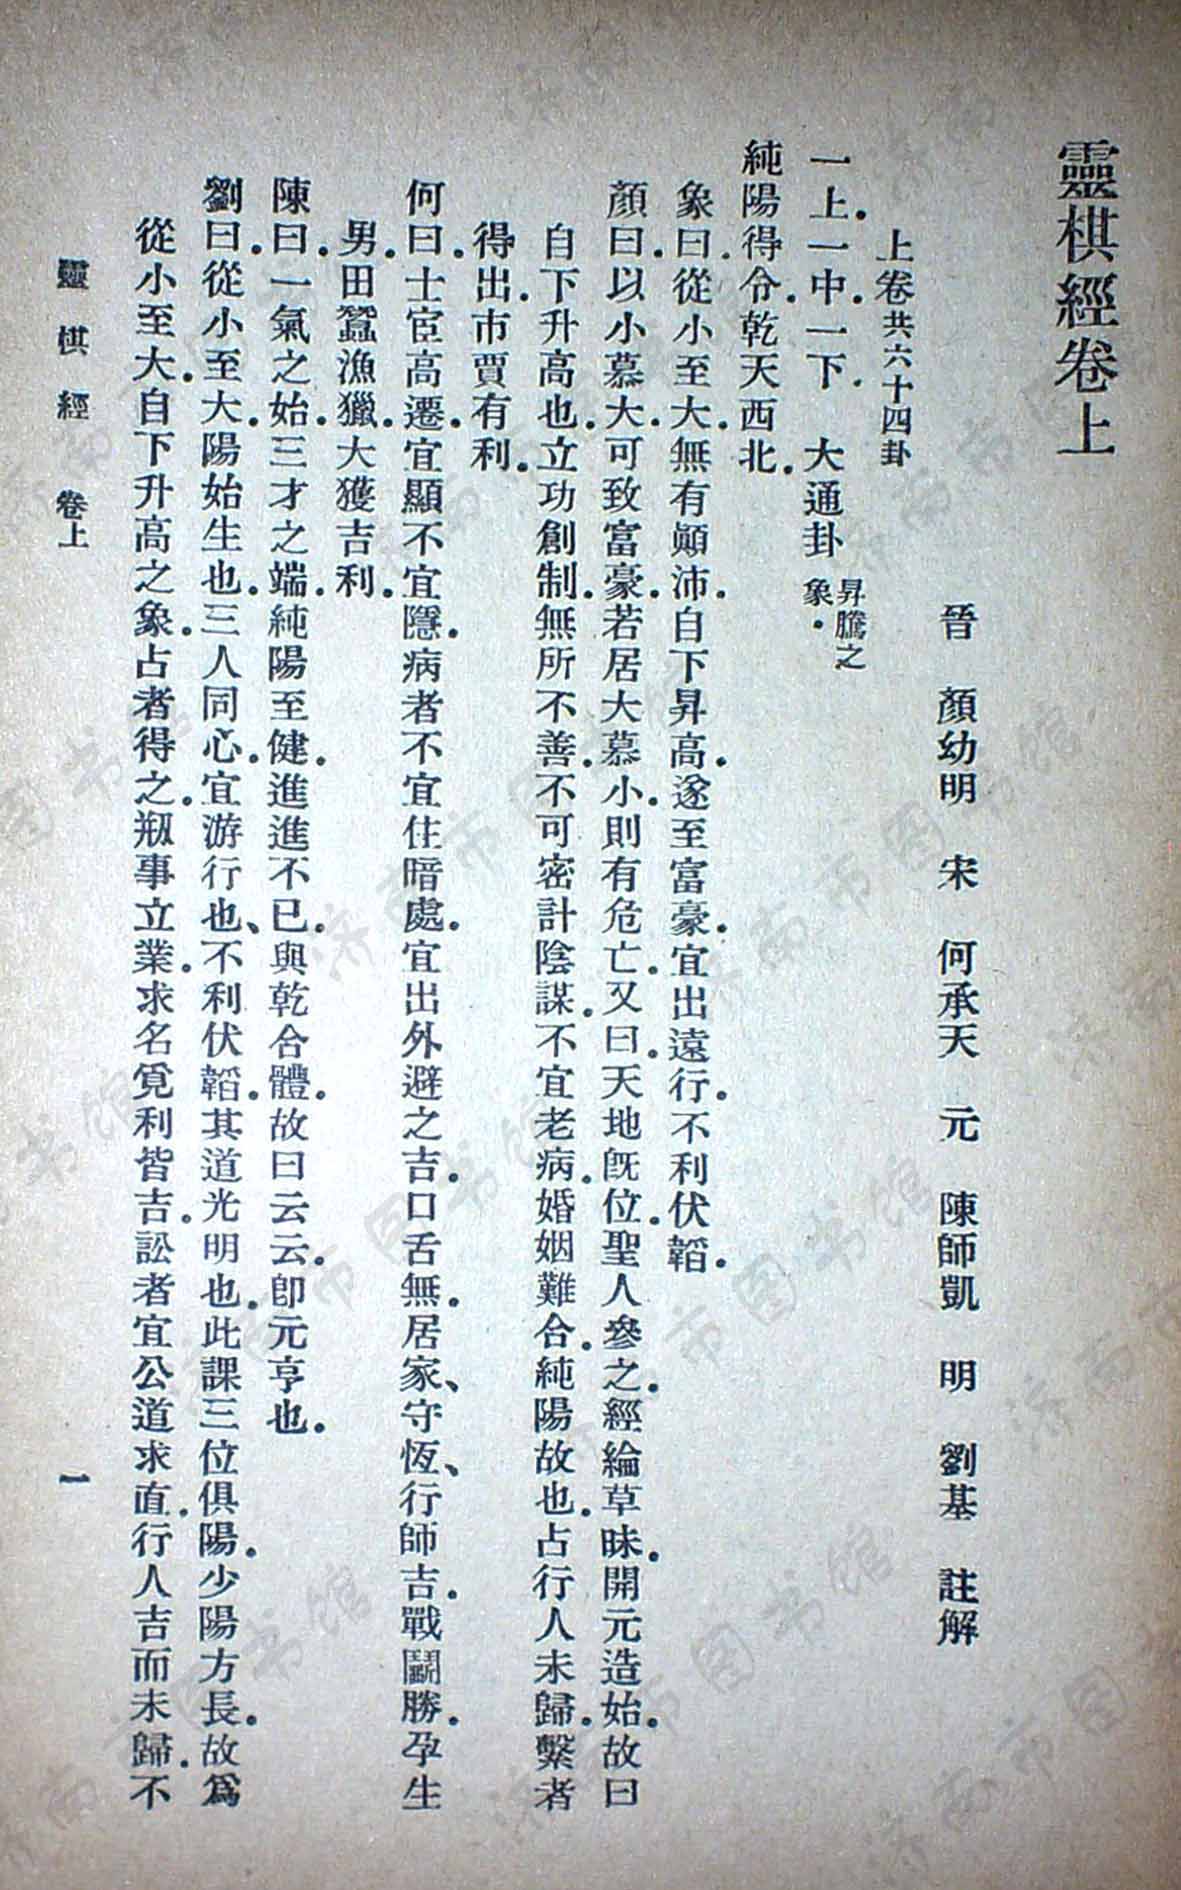 靈棋經卷上
晉　顏幼明　宋　何承天　元　陳師凱　明　劉基　註解
上卷共六十四卦
一上。一中。一下。　大通卦　昇騰之象。
純陽得令。乾天西北。
象曰。從小至大。無有顚沛。自下昇高。遂至富豪。宜出遠行。不利伏韜。
顏曰。以小慕大。可致富豪。若居大慕小。則有危亡。又曰。天地旣位。聖人參之。經綸草昧。開元造始。故曰
自下升高也。立功創制。無所不善。不可密計陰謀。不宜老病。婚姻難合。純陽故也。占行人未歸。繫者
得出。市賈有利。
何曰。士宦高遷。宜顯不宜隱。病者不宜住暗處。宜出外避之吉。口舌無。居家、守恆、行師吉。戰鬭勝。孕生
男。田蠶漁獵。大獲吉利。
陳曰。一氣之始。三才之端。純陽至健。進進不已。與乾合體。故曰云云。卽元亨也。
劉曰。從小至大。陽始生也。三人同心。宜游行也、不利伏韜。其道光明也。此課三位俱陽。少陽方長。故爲
從小至大。自下升高之象。占者得之。剏事立業。求名覓利皆吉。訟者宜公道求直。行人吉而未歸。不
靈棋經　卷上
一
济南市图书馆